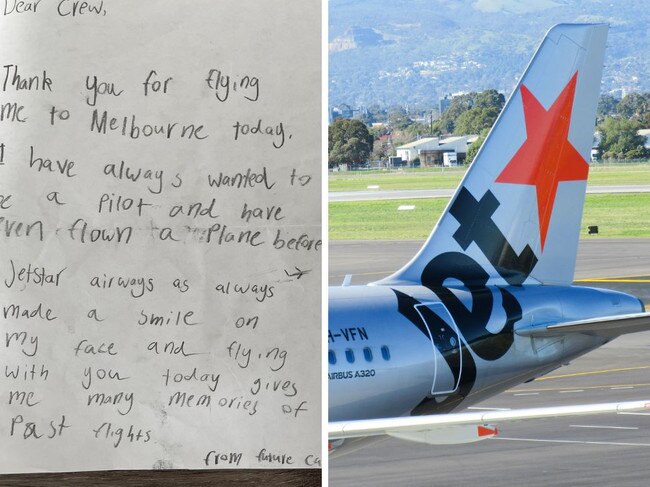 Dear Crew,
Thank you for flying
me to Melbourne today.
I have always wanted to
a pilot and have
even flown a Plane before
Jetstar airways as always
made a smile on
my face and flying
with you today gives
me many memories of
Past flights
from future
Jet
H-VFN
AIRBUS A320